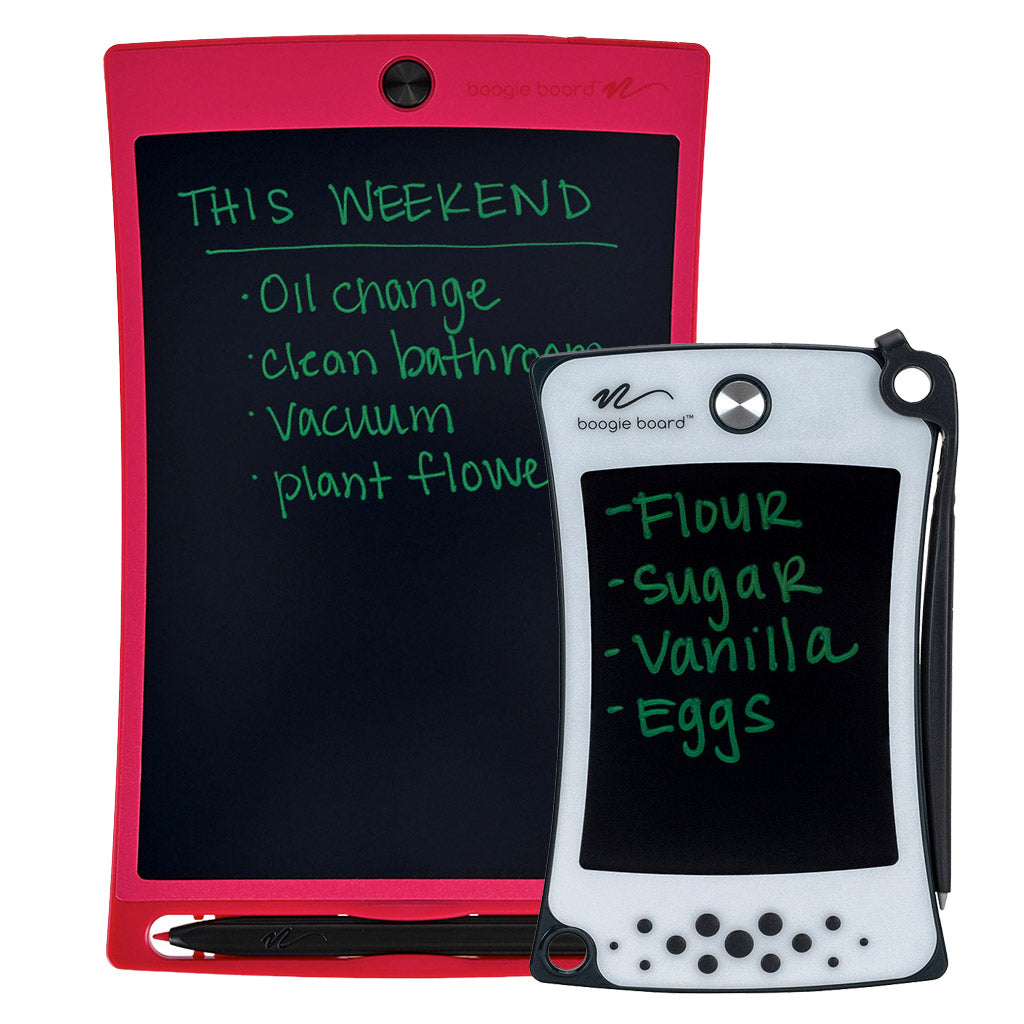 boogie board™
THIS WEEKEND
· Oil change
· clean bathroom
· vacuum
· plant flowe
boogie board™
- Flour
- Sugar
- Vanilla
- Eggs